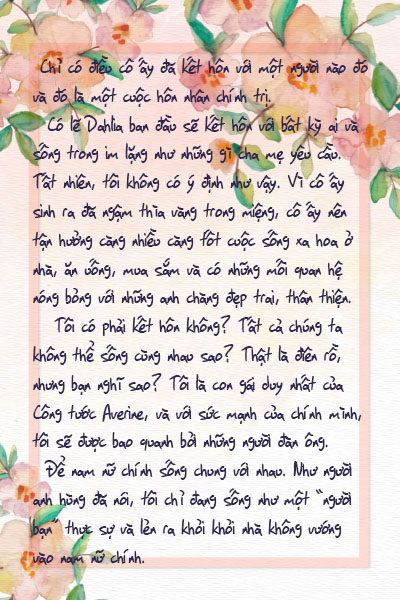 Chỉ có điều cô ấy đã kết hôn với một người nào đó
và đó là một cuộc hôn nhân chính trị.
Có lẽ Dahlia ban đầu sẽ kết hôn với bất kỳ ai và
sống trong im lặng như những gì cha mẹ yêu cầu.
Tất nhiên, tôi không có ý định như vậy. Vì cô ấy
sinh ra đã ngậm thìa vàng trong miệng, cô ấy nên
tận hưởng càng nhiều càng tốt cuộc sống xa hoa ở
nhà, ăn uống, mua sắm và có những mối quan hệ
nóng bỏng với những anh chàng đẹp trai, thân thiện.
Tôi có phải kết hôn không? Tất cả chúng ta
không thể sống cùng nhau sao? Thật là điên rồ,
nhưng bạn nghĩ sao? Tôi là con gái duy nhất của
Công tước Averine, và với sức mạnh của chính mình,
tôi sẽ được bao quanh bởi những người đàn ông.
Để nam nữ chính sống chung với nhau. Như người
anh hùng đã nói, tôi chỉ đang sống như một "người
bạn" thực sự và lẻn ra khỏi khỏi nhà không vướng
vào nam nữ chính.